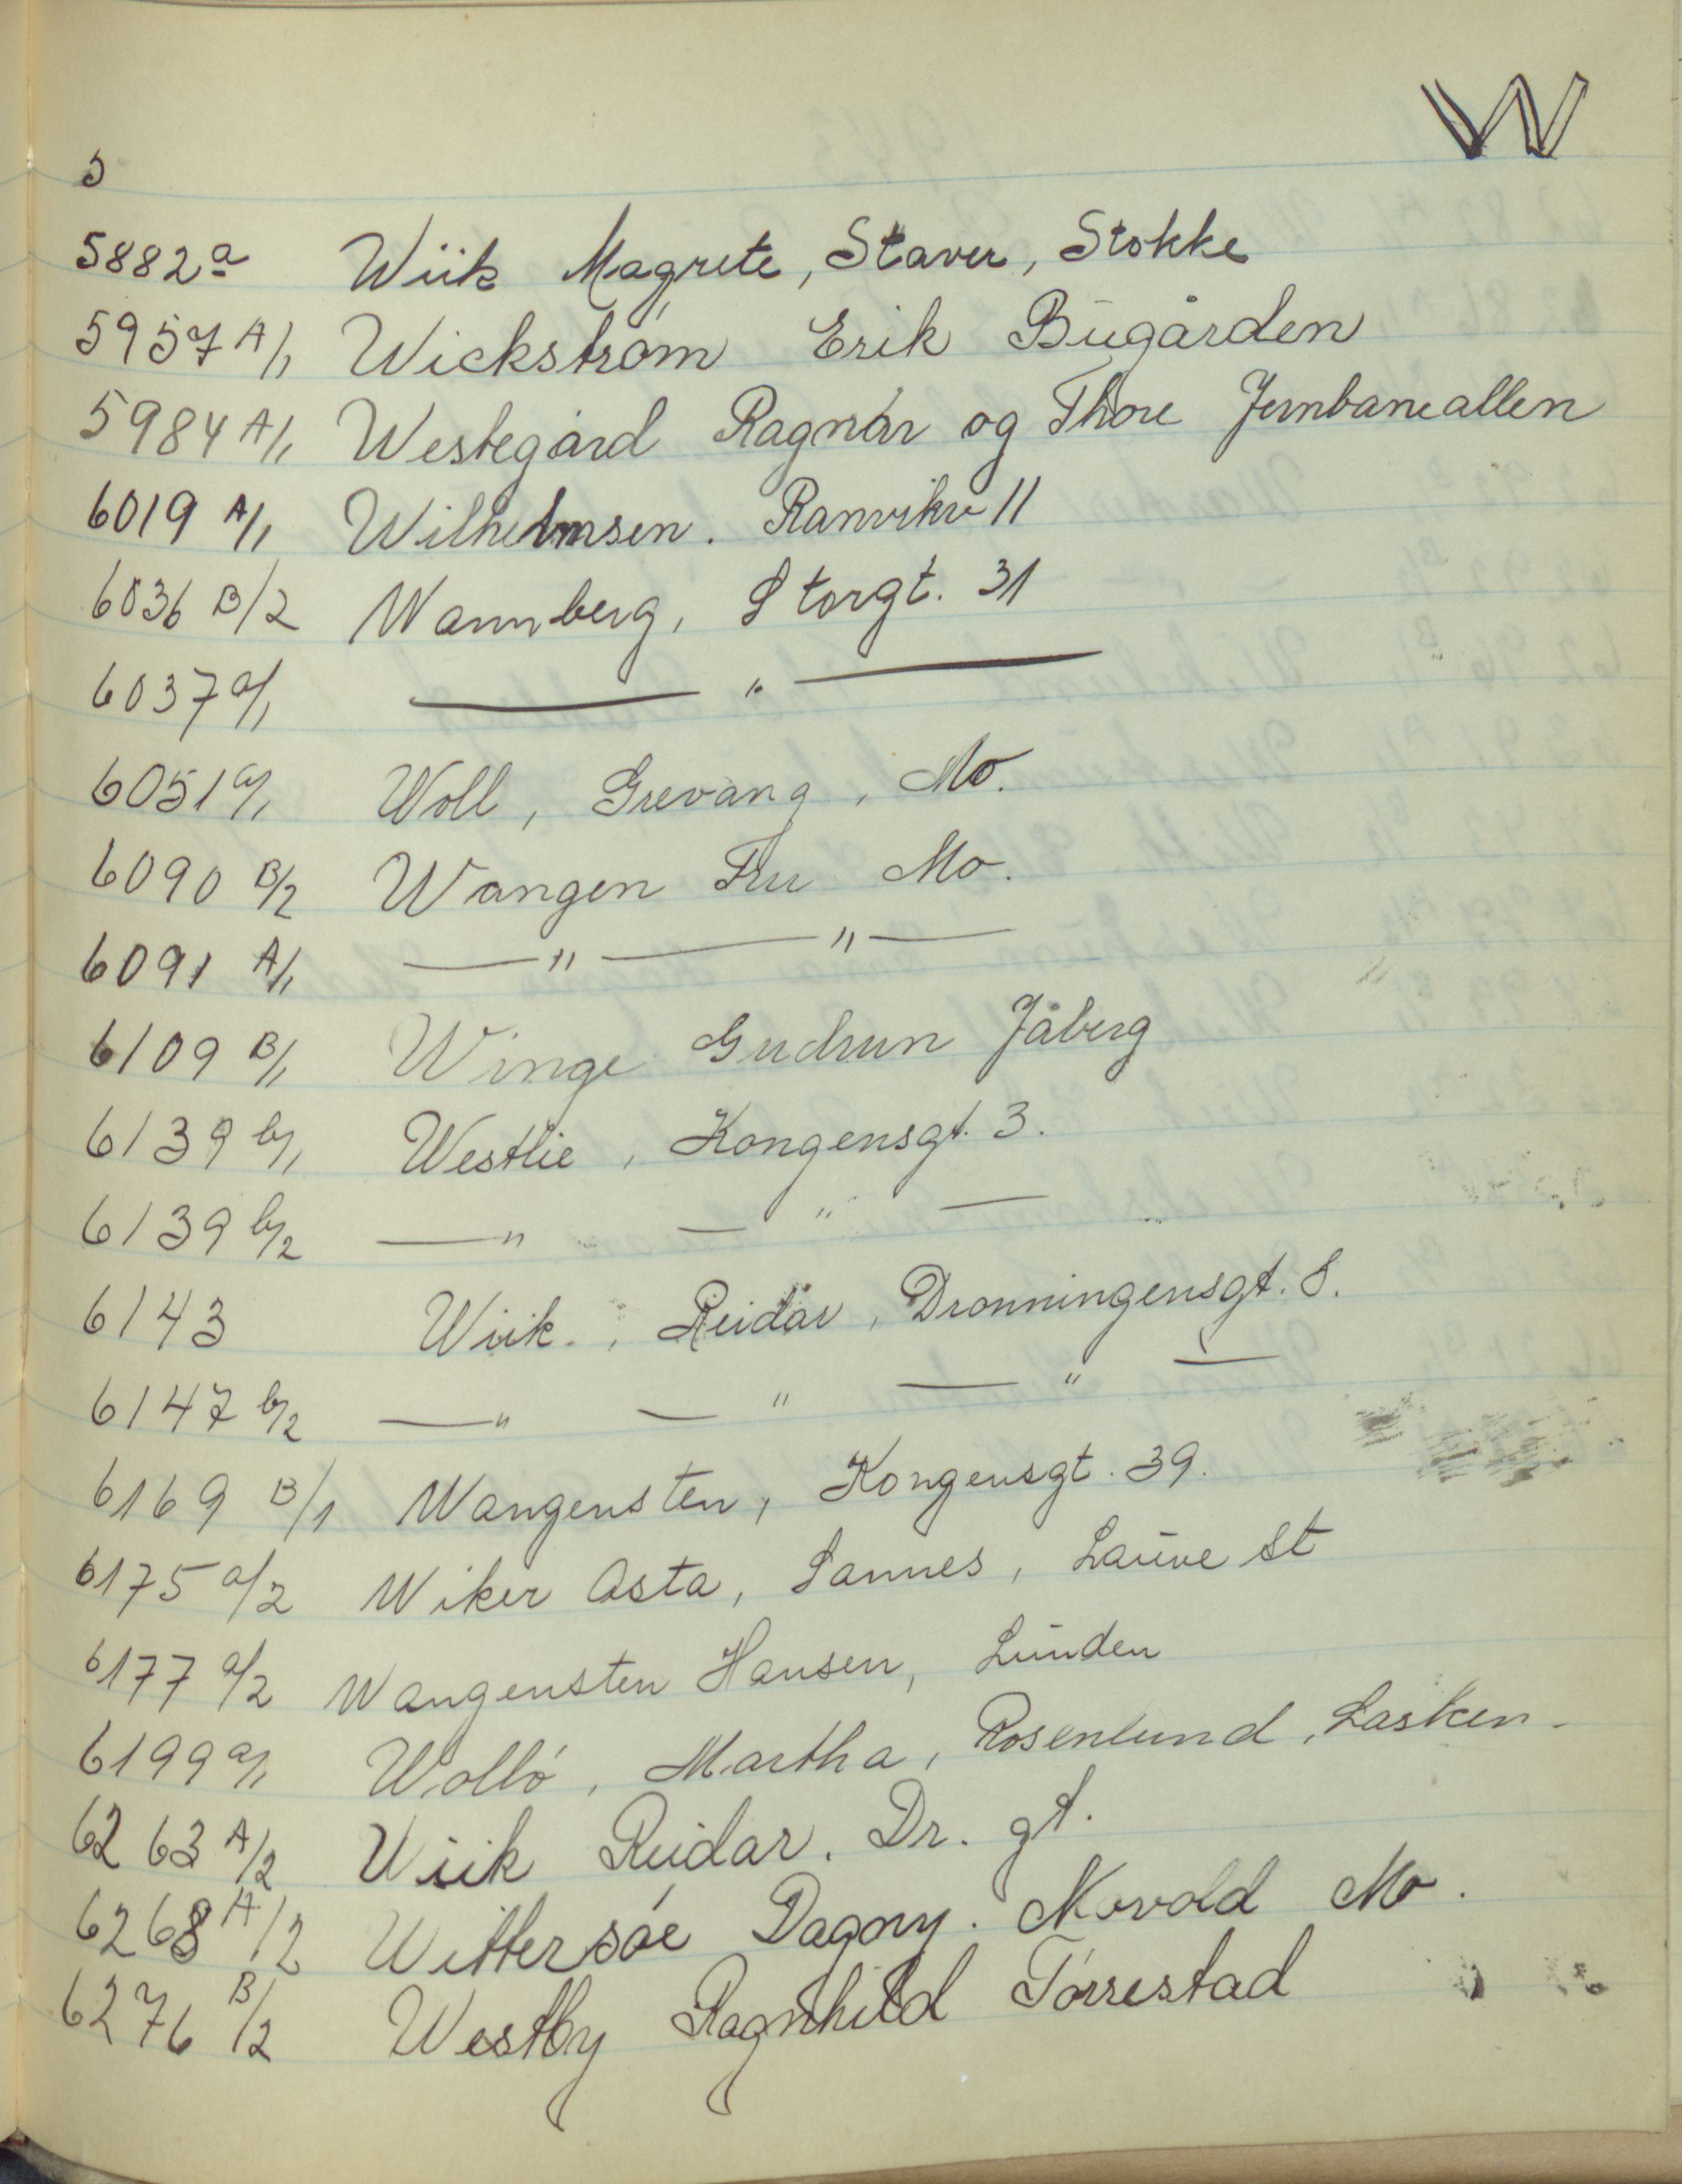 W
5
5882 a Wiik Magrete, Staver, Stokke
5957 A/1 Wickstrøm Erik Bugården
5984 A/1 Westegård Ragnar og Thore Jernbanealleen
6019 A/1 Wilhelmsen. Ranvikv 11
6036 B/2 Wannberg, Storgt. 31
6037 a/1 — " —
6051 a/1 Woll, Grevang, Mo.
6090 B/2 Wangen Fru Mo.
6091 A/1 — " — " —
6109 B/1 Winge Gudrun Jåberg
6139 b/1 Westlie, Kongensgt. 3.
6139 b/2 — " — " —
6143 Wiik., Reidar, Dronningensgt. 8.
6147 b/2 — " — " — " —
6169 B/1 Wangensten, Kongensgt. 39.
6175 a/2 Wiker Asta, Sannes, Lauve St
6177 a/2 Wangensten Hansen, Lunden
6199 a/1 Wollø, Martha, Rosenlund, Lasken.
6263 A/2 Wiik Reidar. Dr. gt.
6268 A/2 Wittersøe Dagny. Movold Mo.
6276 B/2 Westby Ragnhild Tørrestad